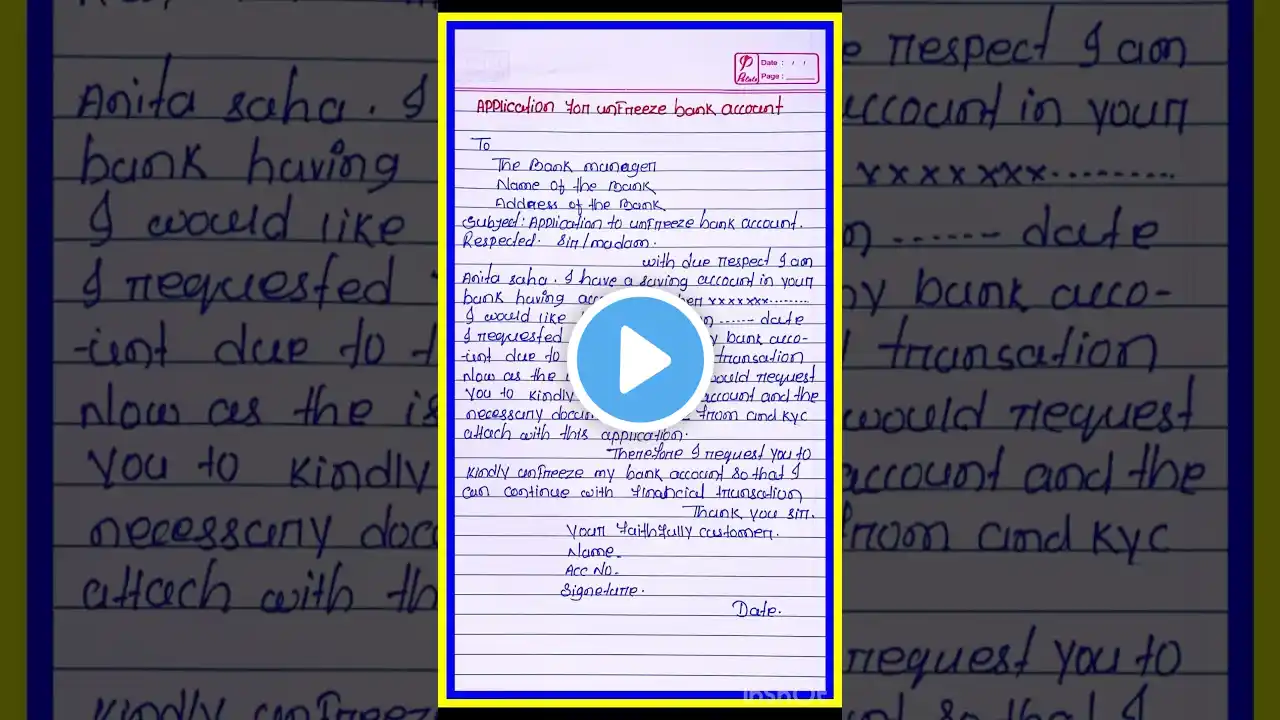 Date : / /
Page :
Application for unfreeze bank account
To
The Bank manager
Name of the Bank
Address of the Bank
Subject: Application to unfreeze bank account.
Respected. Sir/madam.
with due respect I am
Anita saha. I have a saving account in your
bank having xxxxxxx.........
I would like ...... date
I requested my bank acco-
-unt due to transation
Now as the would request
You to kindly account and the
necessary from and KYC
attach with this application.
Therefore I request you to
kindly unfreeze my bank account so that I
can continue with financial transation
Thank you sir.
Your faithfully customer.
Name.
Acc No.
Signeture.
Date.